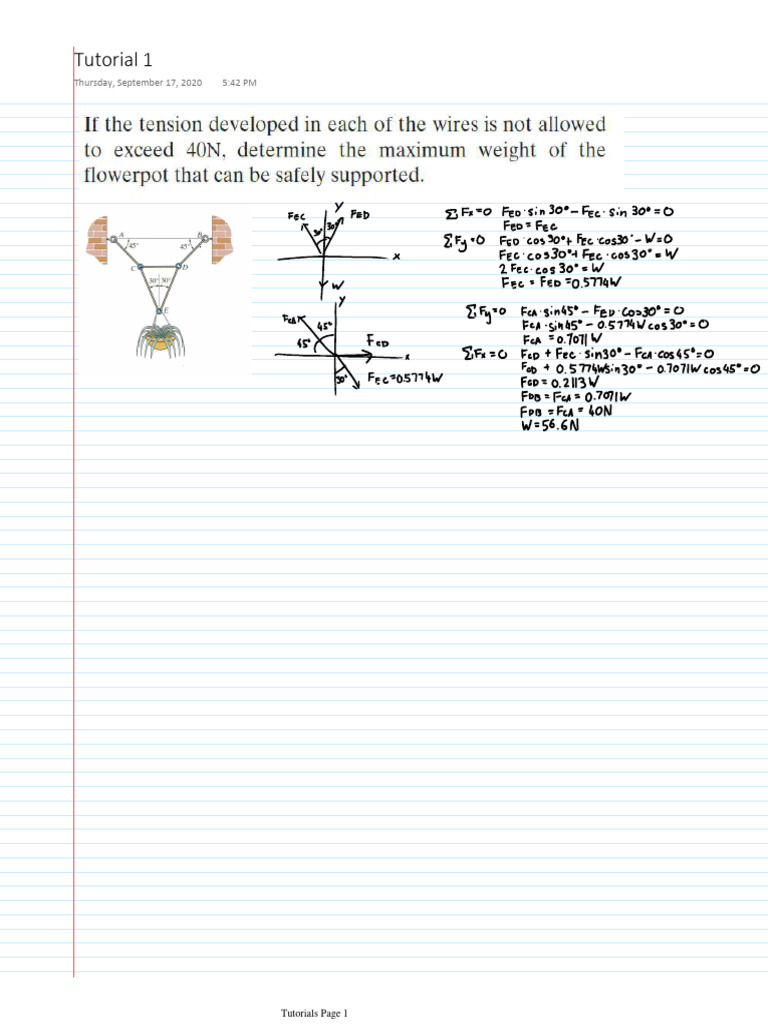 Tutorial 1
Thursday, September 17, 2020 5:42 PM
If the tension developed in each of the wires is not allowed
to exceed 40N, determine the maximum weight of the
flowerpot that can be safely supported.
A B
45° 45°
C D
30° 30°
E
y
FEC FED
30° 30°
x
W
ΣFx=0 FED·sin30°-FEC·sin 30°=0
FED=FEC
ΣFy=0 FED·cos30°+FEC·cos30°-W=0
FEC·cos30°+FEC·cos30°=W
2 FEC·cos 30°=W
FEC = FED =0.5774W
y
FCA
45°
45°
FCD
x
30° FEC=0.5774W
ΣFy=0 FCA·sin45° - FED·Cos30°=0
FCA·sin45° - 0.5774Wcos30°=0
FCA = 0.7071W
ΣFx=0 FCD + FEC·sin30° - FCA·cos45°=0
FCD + 0.5774Wsin30° - 0.7071Wcos45°=0
FCD=0.2113W
FDB=FCA=0.7071W
FDB=FCA=40N
W=56.6N
Tutorials Page 1